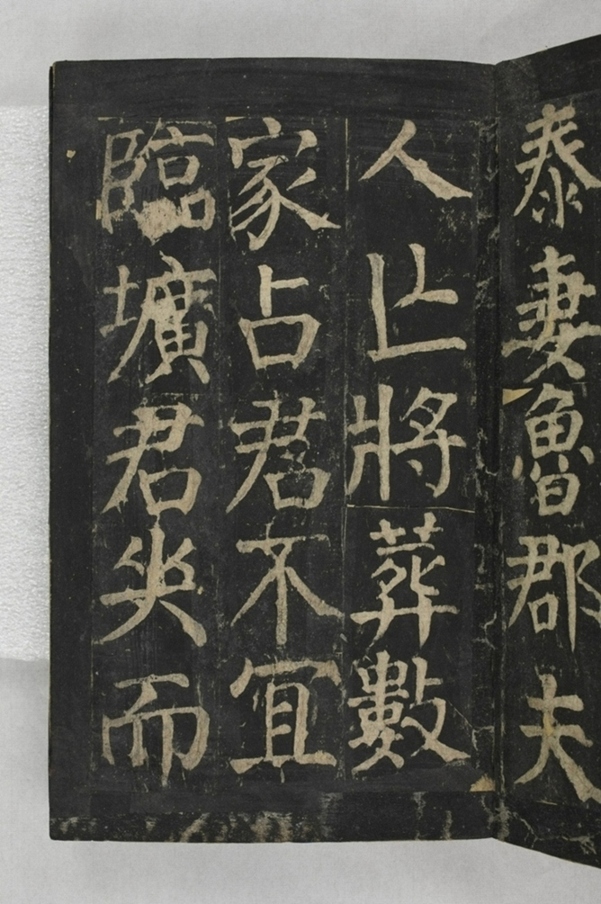 泰妻魯郡夫
人亡將葬數
家占君不宜
臨壙君笑而